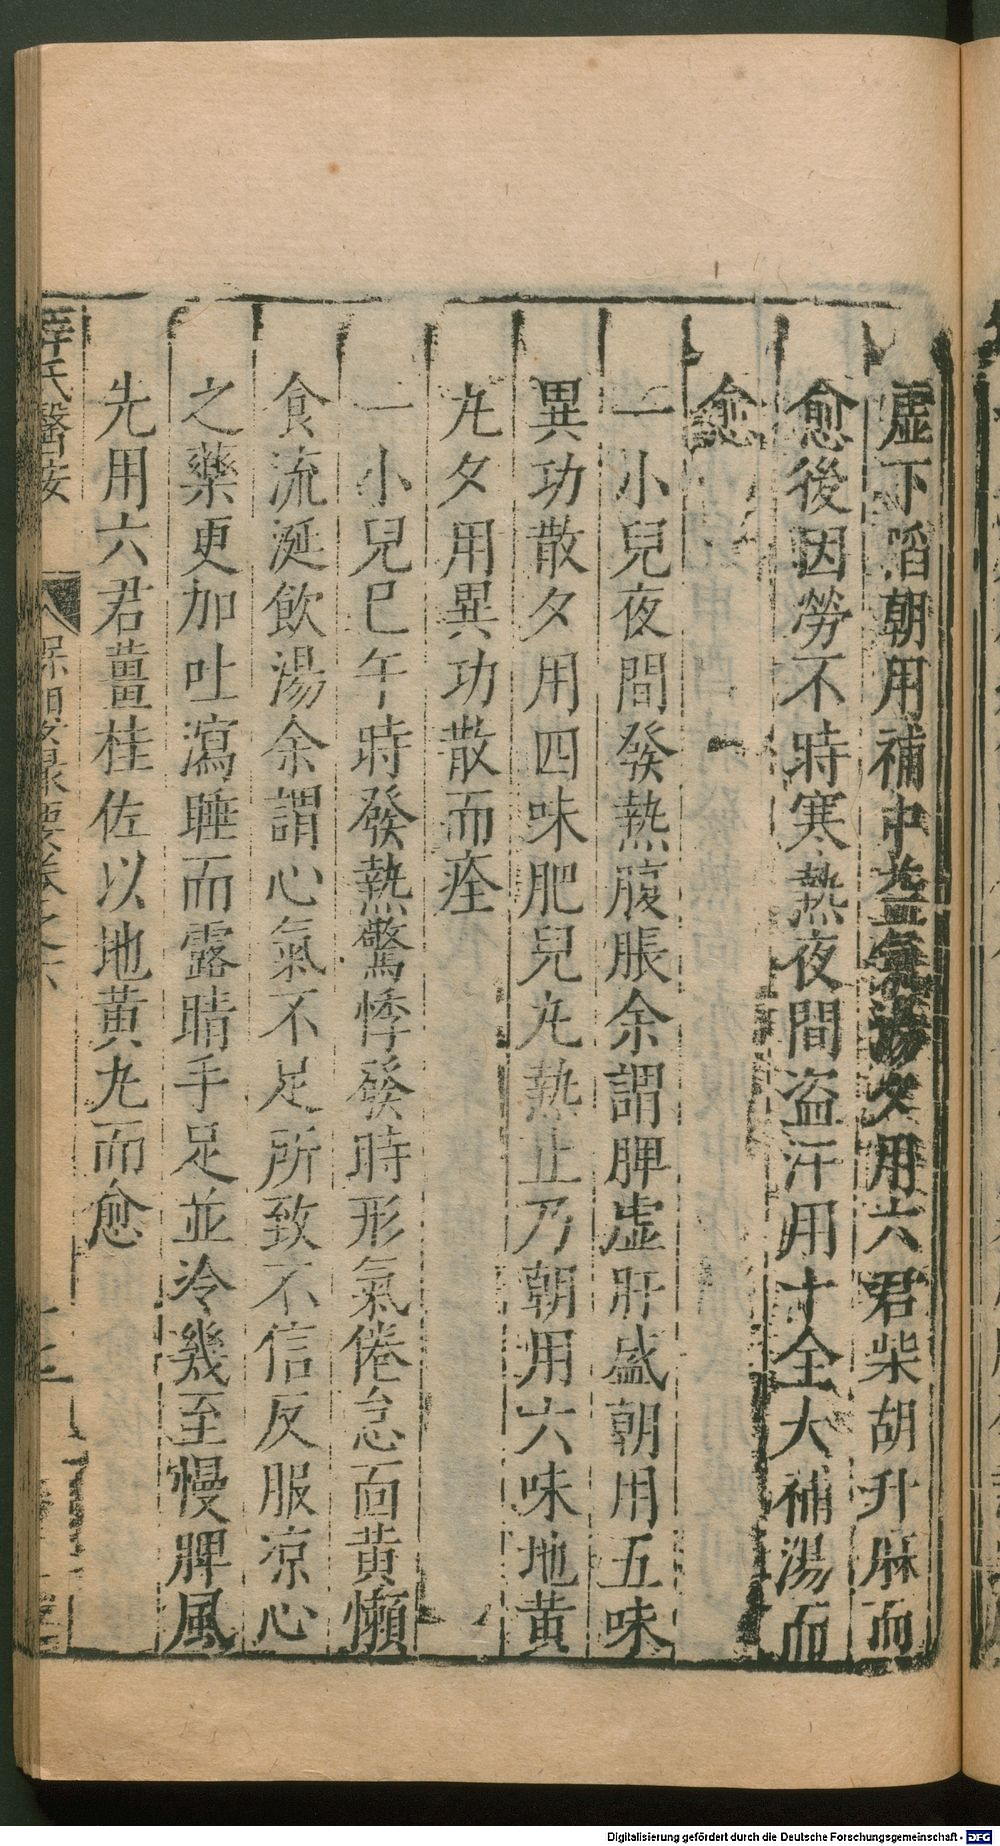 虛下陷朝用補中益氣湯夕用六君柴胡升麻而
愈後因勞不時寒熱夜間盜汗用十全大補湯而
愈
一小兒夜間發熱腹脹余謂脾虛肝盛朝用五味
異功散夕用四味肥兒丸熱止乃朝用六味地黃
丸夕用異功散而痊
一小兒巳午時發熱驚悸發時形氣倦怠面黃懶
食流涎飲湯余謂心氣不足所致不信反服涼心
之藥更加吐瀉睡而露睛手足並冷幾至慢脾風
先用六君薑桂佐以地黃丸而愈
薛氏醫按 保嬰撮要卷之六 十三
Digitalisierung gefördert durch die Deutsche Forschungsgemeinschaft - DFG